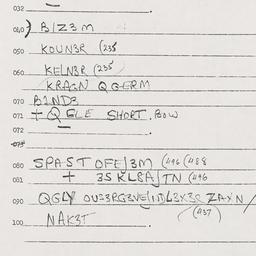 032
040 ) BIZ3M
050 KOUN3R (235
060 KELN3R (235
KRAGN QGERM
070 BIND3
071 + QELE SHORT. ROW
072
073
080 SPAST OFE/3M (496 (488
081 + 3SKL8A/TN (496
090 QGLY
(437)
100 NAK3T